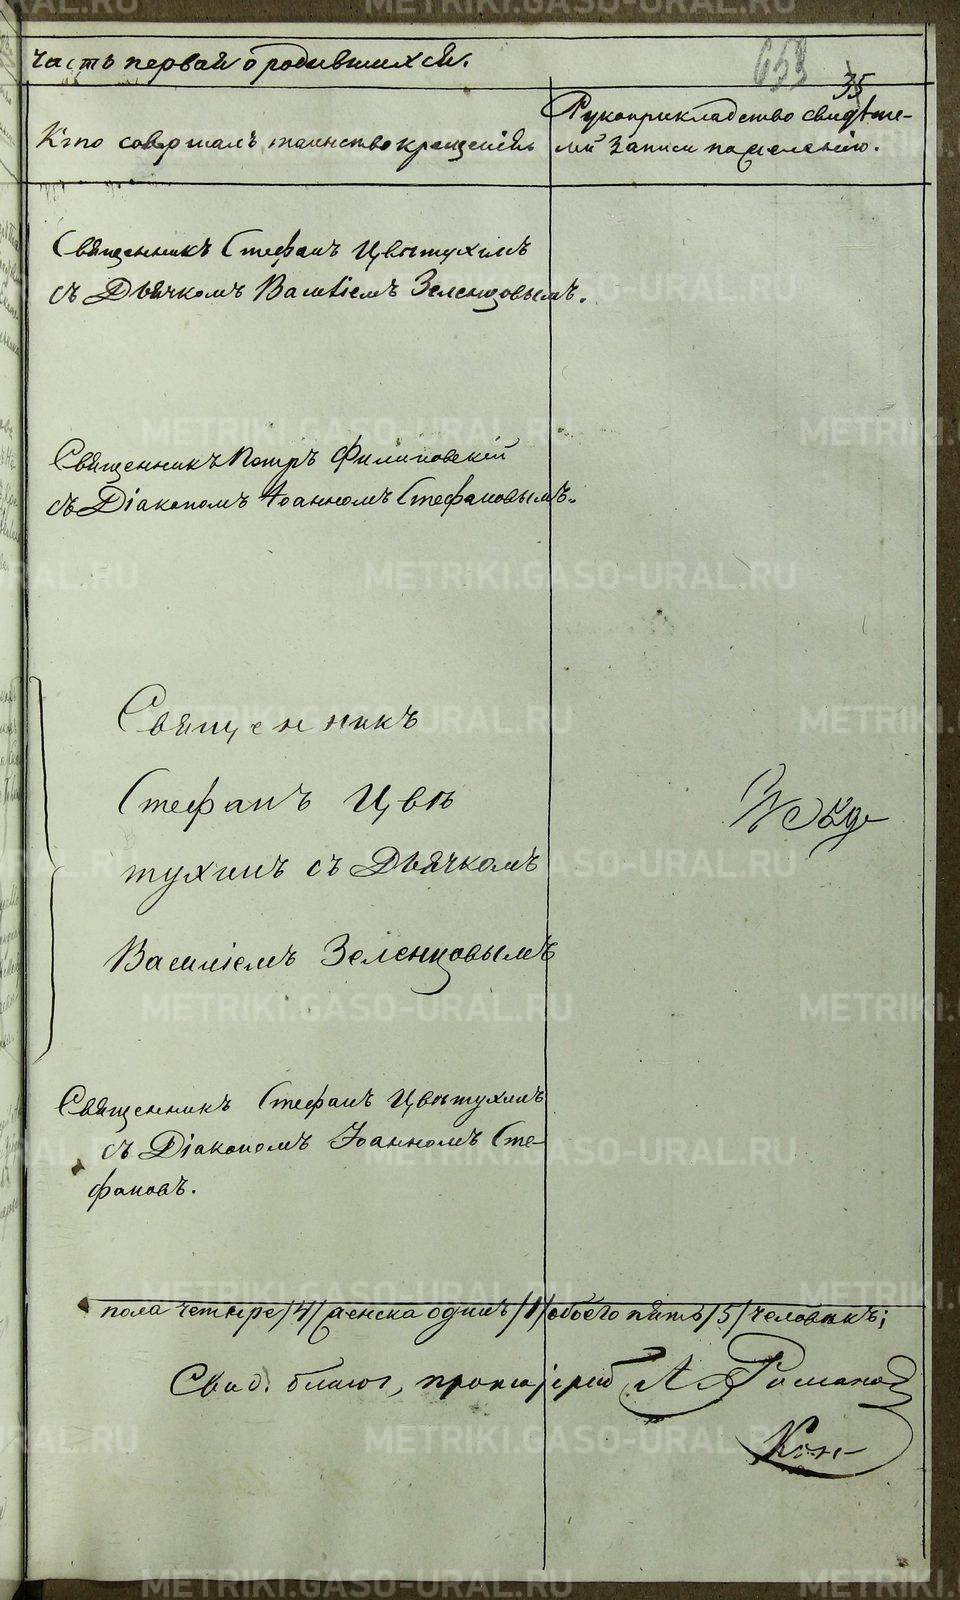 Часть первая о родившихся.
653
35
Кто совершалъ таинство крещенія
Рукоприкладство свидѣте-
лей записи по желанію.
Священникъ Стефанъ Цвѣтухинъ
съ Дьячкомъ Василіемъ Зеленцовымъ.
Священникъ Петръ Филиповскій
съ Діакономъ Іоанномъ Стефановымъ.
Священникъ
Стефанъ Цвѣ
тухинъ съ Дьячкомъ
Василіемъ Зеленцовымъ
Священникъ Стефанъ Цвѣтухинъ
съ Діакономъ Іоанномъ Сте-
фановъ.
пола четыре /4/ женска одинъ /1/ обоего пять /5/ человѣкъ;
Свид. благоч, протоіерей А Романов
METRIKI.GASO-URAL.RU